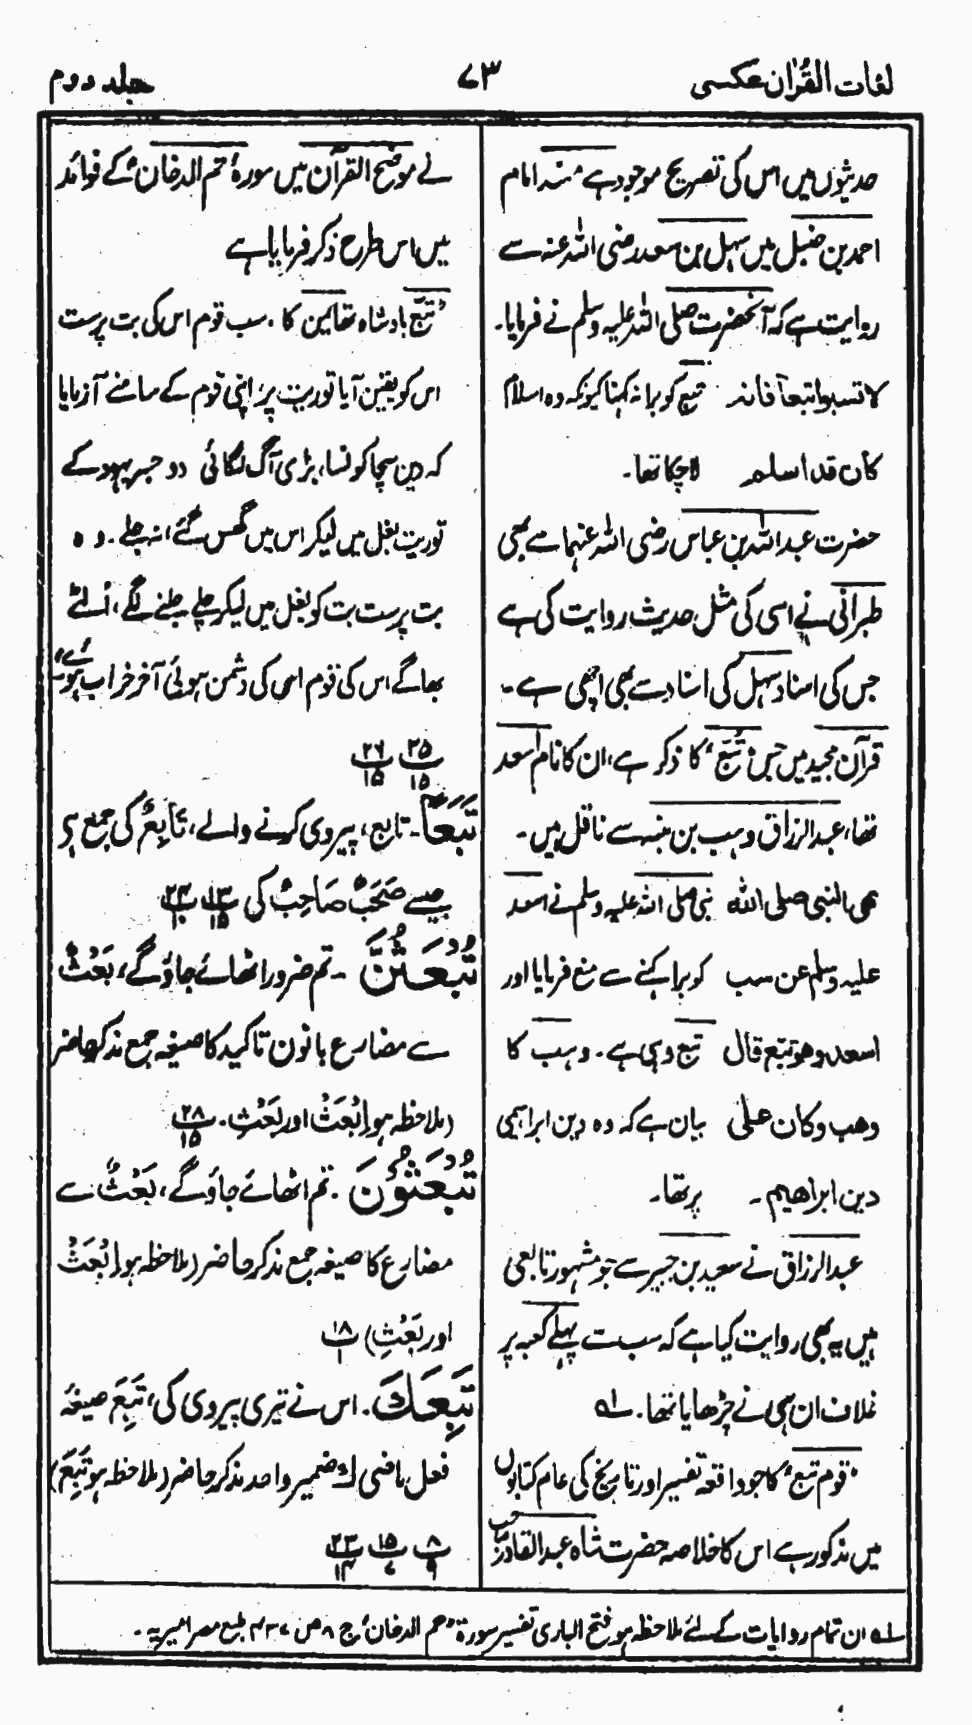 لغات القرآن عکسی
۷۳
جلد دوم
حدیثوں میں اس کی تصریح موجود ہے مسند امام
احمد بن حنبل میں سہل بن سعد رضی اللہ عنہ سے
روایت ہے کہ آنحضرت صلی اللہ علیہ وسلم نے فرمایا۔
لا تسبوا تبعاً فانہ تبع کو برا نہ کہنا کیونکہ وہ اسلام
کان قد اسلم لاچکا تھا۔
حضرت عبداللہ بن عباس رضی اللہ عنہما سے بھی
طبرانی نے اسی کی مثل حدیث روایت کی ہے
جس کی اسناد سہل کی اسناد سے بھی اچھی ہے۔
قرآن مجید میں جس "تُبَّع" کا ذکر ہے، ان کا نام اسعد
تھا، عبدالرزاق وہب بن منبہ سے ناقل ہیں۔
نھی النبی صلی اللہ نبی صلی اللہ علیہ وسلم نے اسعد
علیہ وسلم عن سب کو برا کہنے سے منع فرمایا اور
اسعد وھو تبّع قال تبع وہی ہے۔ وہب کا
وھب وکان علی بیان ہے کہ وہ دین ابراہیمی
دین ابراھیم۔ پر تھا۔
عبدالرزاق نے سعید بن جبیر سے جو مشہور تابعی
ہیں یہ بھی روایت کیا ہے کہ سب سے پہلے کعبہ پر
غلاف ان ہی نے چڑھایا تھا۔ ؎۱
"قوم تبع" کا جو واقعہ تفسیر اور تاریخ کی عام کتابوں
میں مذکور ہے اس کا خلاصہ حضرت شاہ عبدالقادر صاحب
نے موضح القرآن میں سورۂ حٰم الدخان کے فوائد
میں اس طرح ذکر فرمایا ہے
"تبّع بادشاہ تھا یمن کا۔ سب قوم اس کی بت پرست
اس کو یقین آیا توریت پر، اپنی قوم کے سامنے آزمایا
کہ دین سچا کونسا، بڑی آگ لگائی دو حبر یہود کے
توریت بغل میں لیکر اس میں گھس گئے، نہ جلے۔ وہ
بت پرست بت کو بغل میں لیکر چلے جلنے لگے، اُلٹے
بھاگے اس کی قوم اسی کی دشمن ہوئی آخر خراب ہوئے"
۲۵/۱۵ ۲۶/۱۵
تَبَعًا۔ تابع، پیروی کرنے والے، تَابِعٌ کی جمع ہے
جیسے صَحَبٌ صَاحِبٌ کی ۱۳/۱۵ ۲۴/۱۰
تُبْعَثُنَّ۔ تم ضرور اٹھائے جاؤ گے، بَعْثٌ
سے مضارع بانون تاکید کا صیغہ جمع مذکر حاضر
(ملاحظہ ہو اِبْعَثْ اور بَعْثِ)۔ ۲۸/۱۵
تُبْعَثُوْنَ۔ تم اٹھائے جاؤ گے، بَعْثٌ سے
مضارع کا صیغہ جمع مذکر حاضر (ملاحظہ ہو اِبْعَثْ
اور بَعْثِ) ۱۸/۱
تَبِعَكَ۔ اس نے تیری پیروی کی، تَبِعَ صیغہ
فعل ماضی ك ضمیر واحد مذکر حاضر (ملاحظہ ہو تَبِعَ)
۸/۹ ۱۵/۷ ۲۳/۱۴
؎۱ ان تمام روایات کے لئے ملاحظہ ہو فتح الباری تفسیر سورۃ "حم الدخان" ج ۸ ص ۴۳۷ طبع مصر امیریہ۔